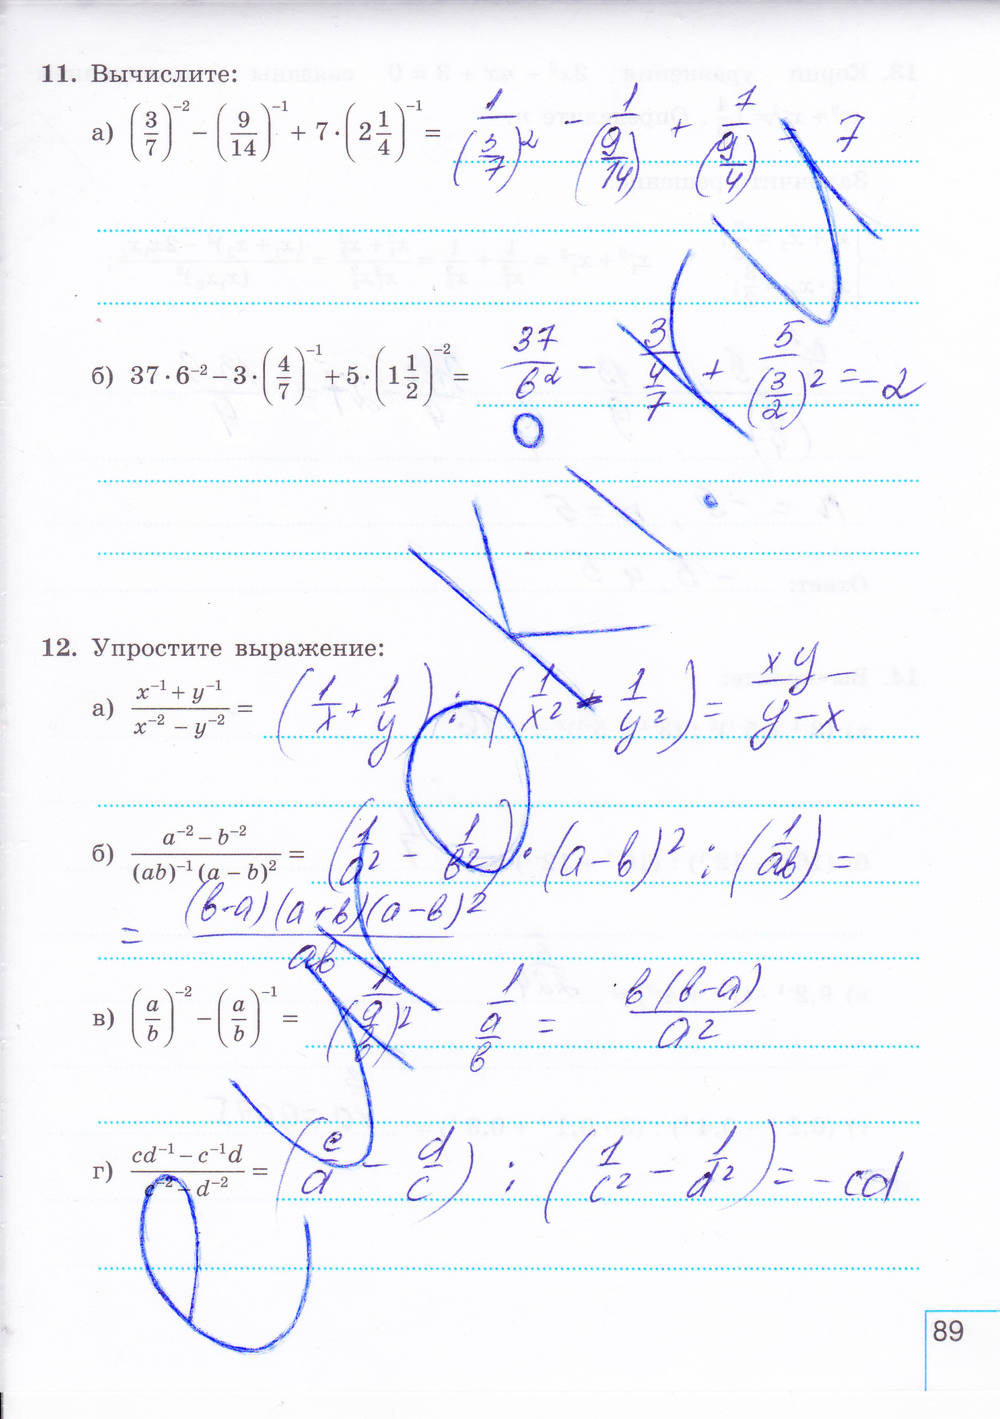 11. Вычислите:
а) (3/7)^-2 − (9/14)^-1 + 7·(2 1/4)^-1 = 1/(3/7)^2 − 1/(9/14) + 7/(9/4) = 7
б) 37·6^-2 − 3·(4/7)^-1 + 5·(1 1/2)^-2 = 37/6^2 − 3/(4/7) + 5/(3/2)^2 = −2
12. Упростите выражение:
а) (x^-1 + y^-1)/(x^-2 − y^-2) = (1/x + 1/y) : (1/x^2 − 1/y^2) = xy/(y − x)
б) (a^-2 − b^-2)/((ab)^-1 (a − b)^2) = (1/a^2 − 1/b^2) · (a − b)^2 : (1/ab) =
= (b−a)(a+b)(a−b)^2/ab
в) (a/b)^-2 − (a/b)^-1 = 1/(a/b)^2 1/(a/b) = b(b−a)/a^2
г) (cd^-1 − c^-1d)/(c^-2 − d^-2) = (c/d − d/c) : (1/c^2 − 1/d^2) = −cd
89